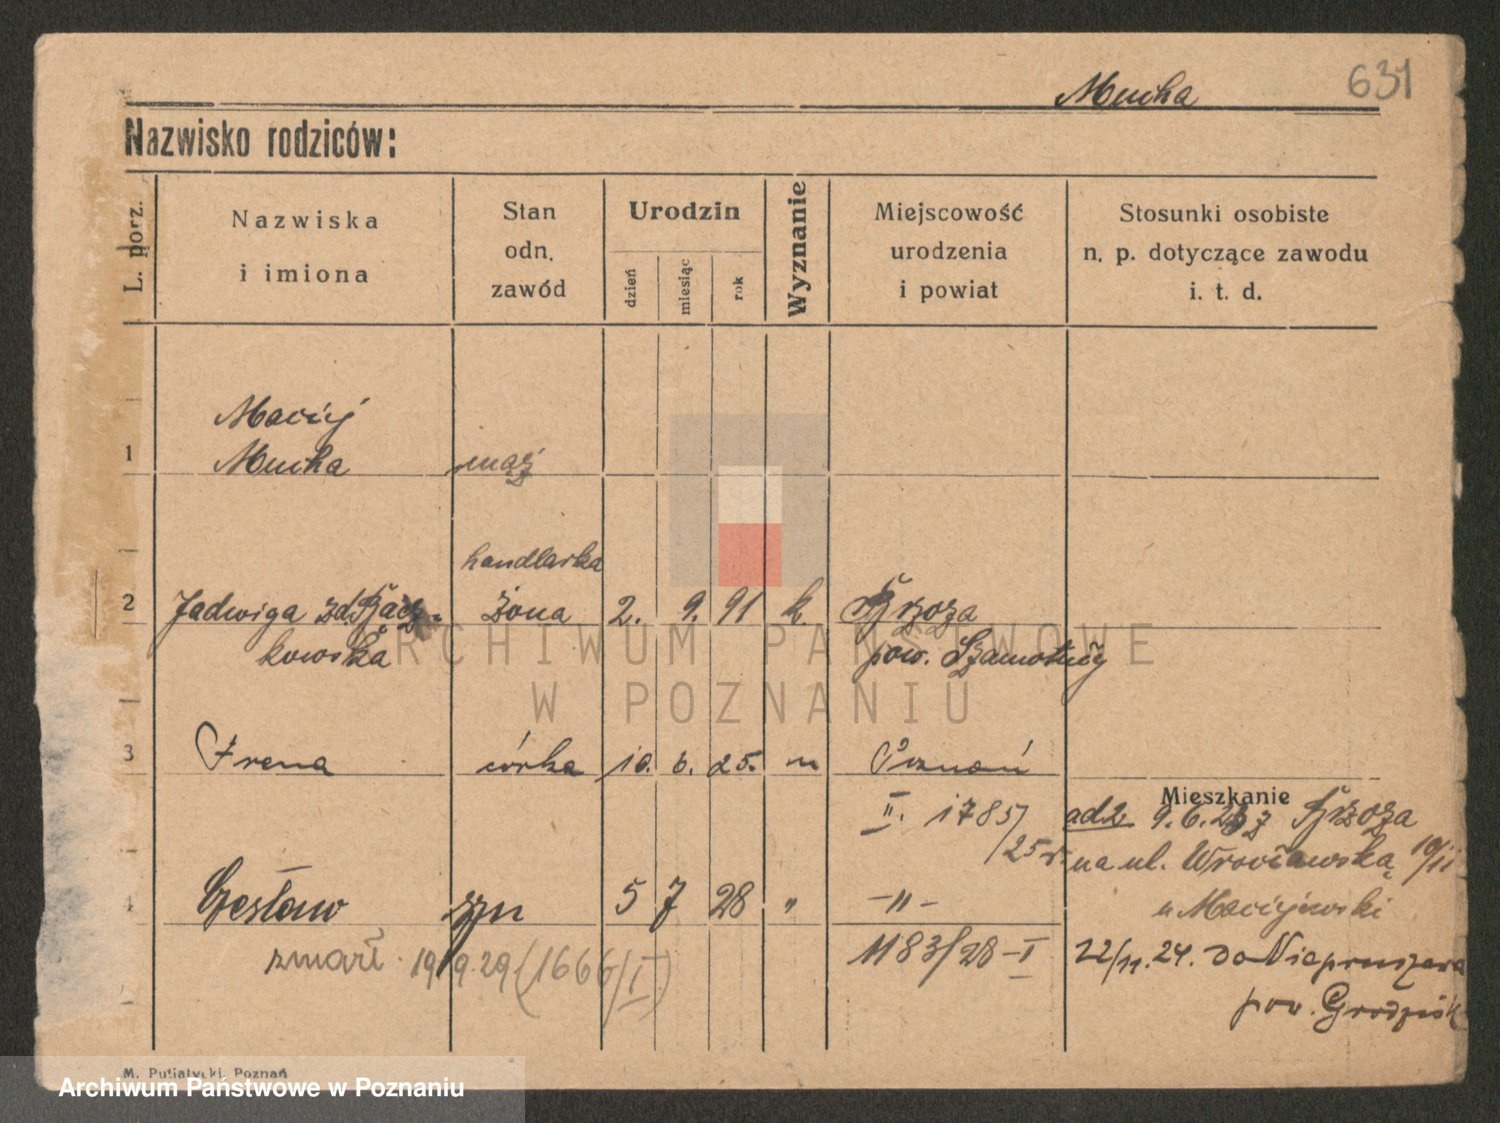 Mucha
631
Nazwisko rodziców:
L. porz.
Nazwiska
i imiona
Stan
odn.
zawód
Urodzin
dzień
miesiąc
rok
Wyznanie
Miejscowość
urodzenia
i powiat
Stosunki osobiste
n. p. dotyczące zawodu
i. t. d.
Maciej
1 Mucha mąż
handlarka
2 Jadwiga żona 2. 9. 91 k.
kowska pow. Szamotuły
3 Irena córka 10. 6. 25. " Poznań
II. 1785/25
Mieszkanie
ad.2 9.6.23 z
na ul. Wrocławską 10/II
u Maciejewski
4 Czesław syn 5 7 28 " -"-
zmarł 19 9.29 (1666/I)
1183/28-I
22/11.24. do Niepruszewa
pow. Grodzisk
M. Putiatycki, Poznań
ARCHIWUM PAŃSTWOWE
W POZNANIU
Archiwum Państwowe w Poznaniu